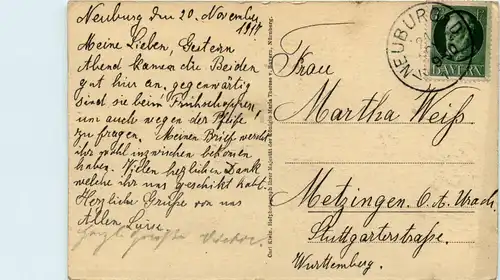 Neuburg den 20. November
1914
Meine Lieben, Gestern
Abend kamen die Beiden
gut hier an. gegenwärtig
sind sie beim Frühschoppen!
um auch wegen der Pfeife
zu fragen. Meinen Brief werdet
ihr wohl inzwischen bekomen
haben. Vielen herzlichen Dank
welche ihr uns geschikt habt.
Herzliche Grüße von uns
Allen
Herzl. Grüße
Carl Klein, Hofphotograph Ihrer Majestät der Königin Maria Therese v. Bayern, Nürnberg.
NEUBURG
BAYERN
Frau
Martha Weiß
Metzingen. O. A. Urach
Stuttgarterstraße.
Württemberg.